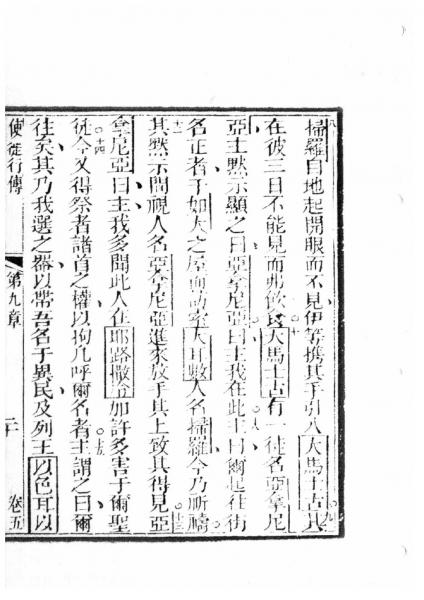 掃羅自地起開眼而不見伊等携其手引入大馬士古其
在彼三日不能見而弗飲食大馬士古有一徒名亞拿尼
亞主默示顯之曰亞拿尼亞曰主我在此主曰爾起往街
名正者于如大之屋而訪客大耳數人名掃羅今乃祈禱
其默示間視人名亞拿尼亞進來放手其上致其得見亞
拿尼亞曰主我多聞此人在耶路撒冷加許多害于爾聖
徒今又得祭者諸首之權以拘凡呼爾名者主謂之曰爾
往矣其乃我選之器以帶吾名于異民及列王以色耳以
使徒行傳
第九章
卷五